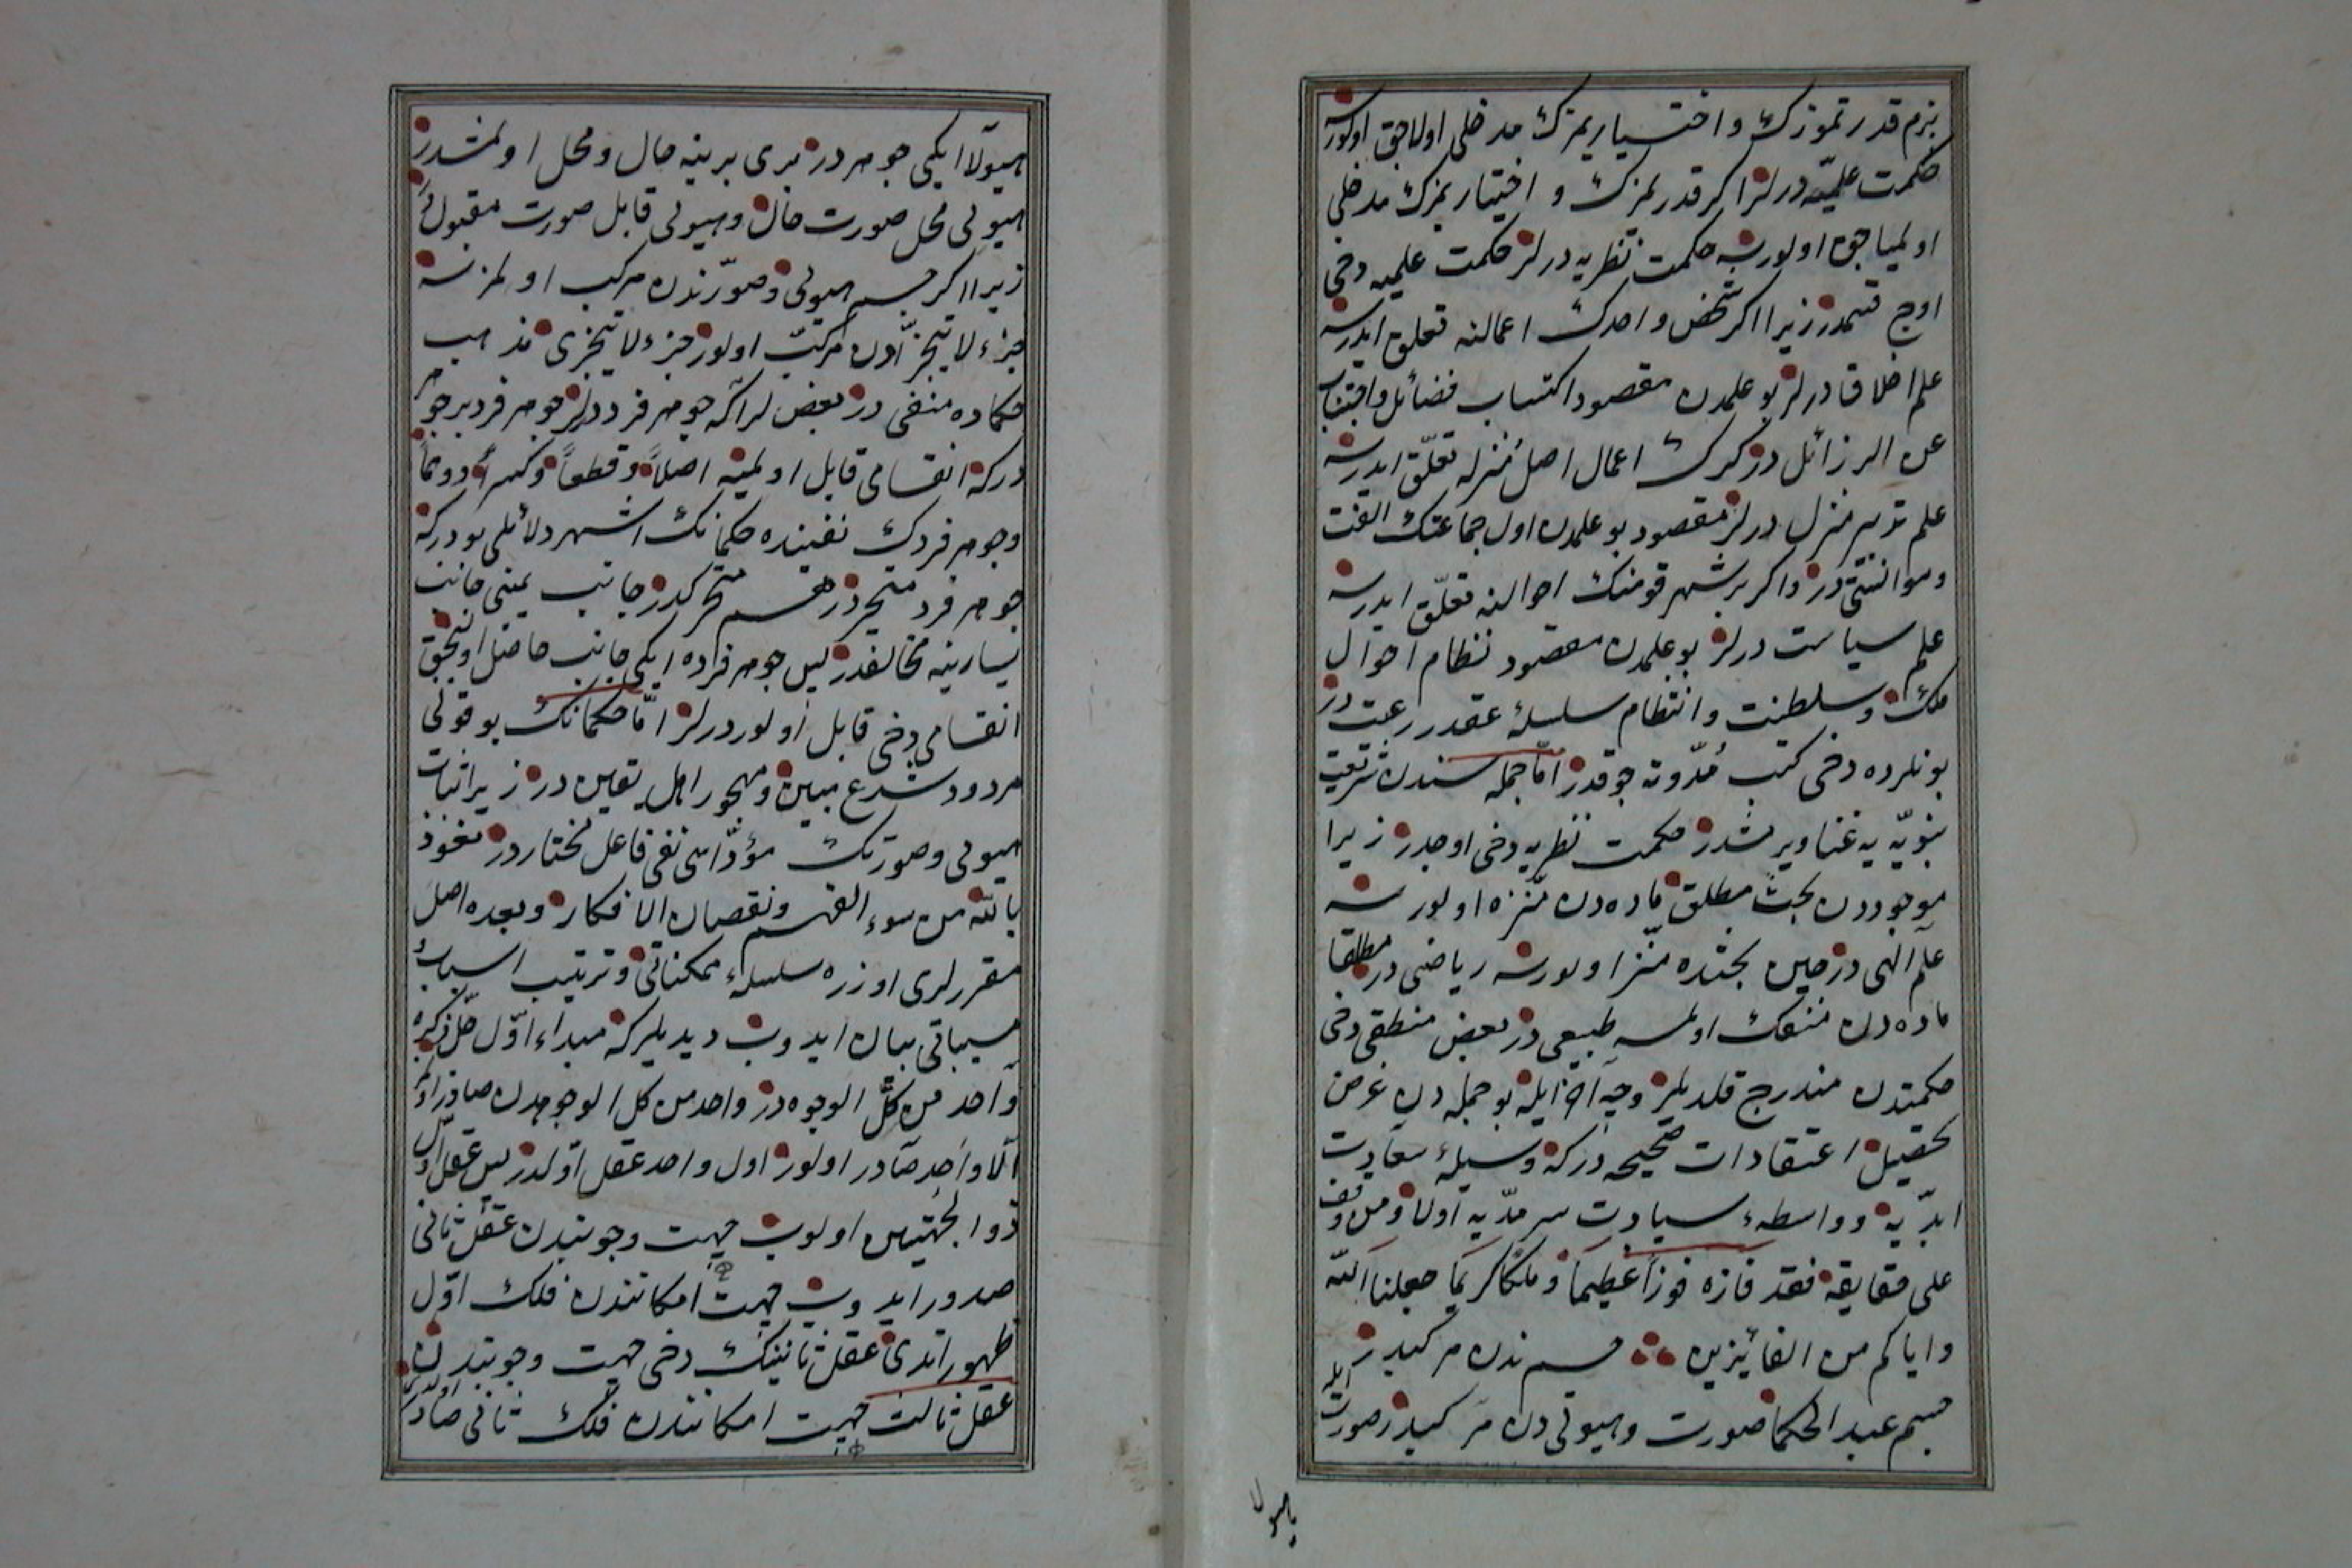 بزم قدرتموزك و اختياريمزك مدخلى اولاجق اولورسه
حكمت عمليّه درلر اكر قدرتمزك و اختياريمزك مدخلى
اولمياجق اولورسه حكمت نظريه درلر حكمت عمليه دخى
اوچ قسمدر زيرا اكر شخص واحدك اعمالنه تعلق ايدرسه
علم اخلاق درلر بو علمدن مقصود اكتساب فضائل واجتناب
عن الرذائل در اكرك اعمال اهل منزله تعلّق ايدرسه
علم تدبير منزل درلر مقصود بو علمدن اول جماعتك الفت
وموانستى در واكر بر شهر قومنك احوالنه تعلّق ايدرسه
علم سياست درلر بو علمدن مقصود نظام احوال
ملك وسلطنت وانتظام سلسلۀ عقد رعيت در
بونلرده دخى كتب مُدّونه چوقدر امّا جمله سندن شريعت
نبويّه يه غنا ويرمشدر حكمت نظريه دخى اوچدر زيرا
موجوددن بحث مطلق مادەدن منزه اولورسه
علم آلهى در حين بحثده منزا اولورسه رياضى در مطلقا
مادەدن منفك اولمسه طبيعى در بعض منطقى دخى
حكمتدن مندرج قلديلر وجه آخر ايله بو جمله دن غرض
تحصيل اعتقادات صحيحه دركه وسيلۀ سعادت
ابدّيه و واسطهٔ سيادت سرمدّيه اولا ومن وقف
على حقايقه فقد فازه فوزاً عظيماً و ملكاً كريما جعلنا الله
واياكم من الفائيزين جسم ندن مركبدر
جسم عند الحكما صورت وهيولى دن مركبدر صورت ايله
ياهيولا
هيولآ ايكى جوهر در برى برينه حال ومحل اولمشدر
هيولى محل صورت حال وهيولى قابل صورت مقبول
زيرا اكر جسم هيولى وصورتدن مركب اولمزسه
جزء لا يتجزّأدن مركّب اولور جزء لا يتجزى مذهب
حكماده منفى در بعض لر اكه جوهر فرد ديرلر جوهر فرد بر جوهر
دركه انقسامى قابل اولميه اصلاً وقطعاً وكسراً ووهماً
وجوهر فردك نفينده حكمانك اشهر دلائلى بودركه
جوهر فرد متحيّزدر هر جسم متحركدر جانب يمينى جانب
يسارينه مخالفدر پس جوهر فرده ايكى جانب حاصل اوليجق
انقسامى دخى قابل اولور درلر امّا حكمانك بو قولى
مردود شرع مبين ومهجور اهل يقين در زيرا اثبات
هيولى وصورتك مؤدّاسى نفى فاعل مختار در نعوذ
بالله من سوء الفهم ونقصان الافكار وبعده اصل
مقررلرى اوزره سلسلهٔ ممكناتى وترتيب اسباب و
مسبباتى بيان ايدوب ديديلركه مبداء اوّل جلّ ذكره
واحد من كلّ الوجوه در واحد من كل الوجوهدن صادر اولمز
الّا واحد صادر اولور اول واحد عقل اوّلدر پس عقل اوّل
ذوالجهتين اولوب جهت وجوبندن عقل ثانى
صدور ايدوب جهت امكانندن فلك اوّل
ظهور ايتدى عقل ثانينك دخى جهت وجوبندن
عقل ثالث جهت امكانندن فلك ثانى صادر